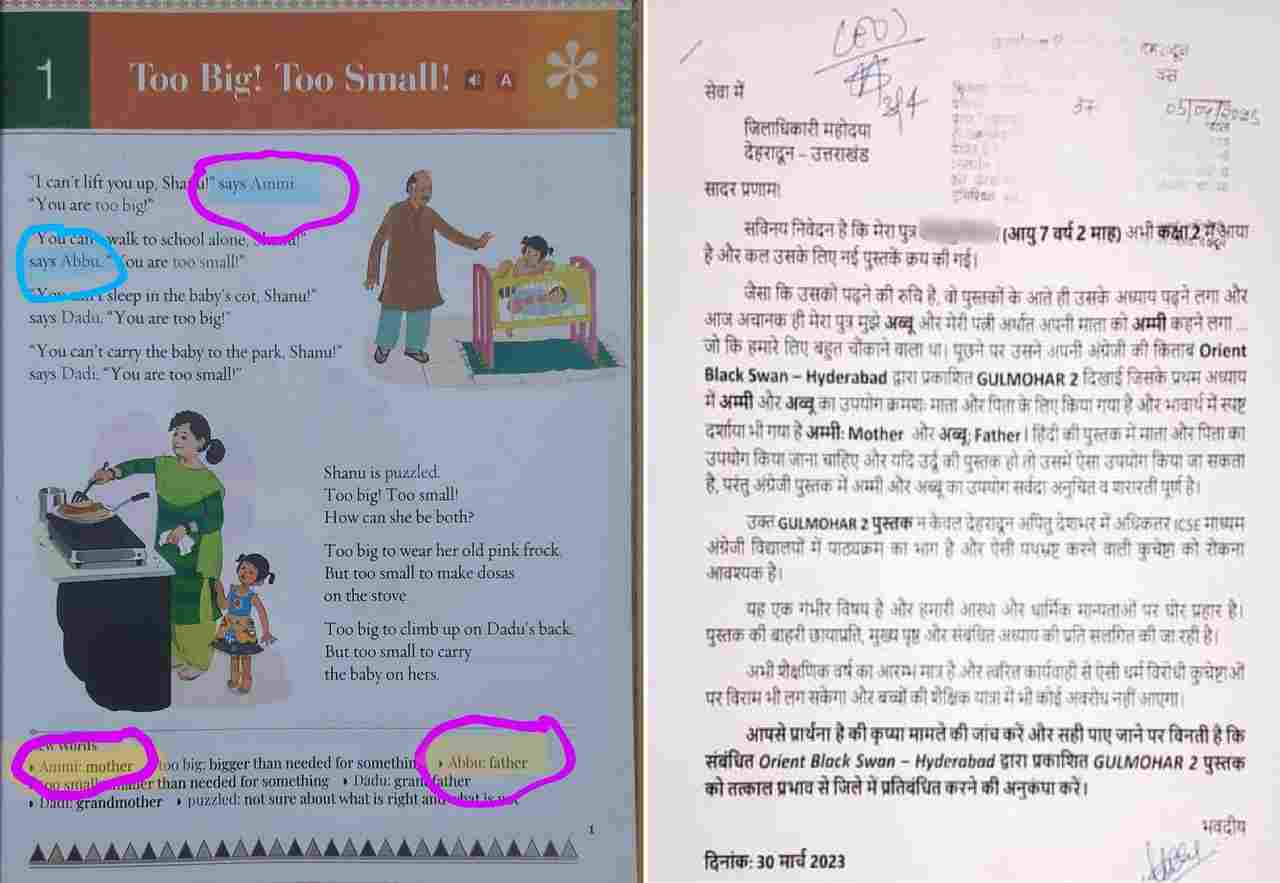 1
Too Big! Too Small!
A
"I can't lift you up, Shanu!" says Ammi.
"You are too big!"
"You can't walk to school alone, Shanu!"
says Abbu. "You are too small!"
"You can't sleep in the baby's cot, Shanu!"
says Dadu. "You are too big!"
"You can't carry the baby to the park, Shanu!"
says Dadi. "You are too small!"
Shanu is puzzled.
Too big! Too small!
How can she be both?
Too big to wear her old pink frock.
But too small to make dosas
on the stove
Too big to climb up on Dadu's back.
But too small to carry
the baby on hers.
New words
Ammi: mother too big: bigger than needed for something Abbu: father
too small: smaller than needed for something Dadu: grandfather
Dadi: grandmother puzzled: not sure about what is right and what is not
1
सेवा में
जिलाधिकारी महोदया
देहरादून – उत्तराखंड
सादर प्रणाम!
सविनय निवेदन है कि मेरा पुत्र (आयु 7 वर्ष 2 माह) अभी कक्षा 2 में आया
है और कल उसके लिए नई पुस्तकें क्रय की गई।
जैसा कि उसको पढ़ने की रुचि है, वो पुस्तकों के आते ही उसके अध्याय पढ़ने लगा और
आज अचानक ही मेरा पुत्र मुझे अब्बू और मेरी पत्नी अर्थात अपनी माता को अम्मी कहने लगा ...
जो कि हमारे लिए बहुत चौंकाने वाला था। पूछने पर उसने अपनी अंग्रेजी की किताब Orient
Black Swan – Hyderabad द्वारा प्रकाशित GULMOHAR 2 दिखाई जिसके प्रथम अध्याय
में अम्मी और अब्बू का उपयोग क्रमशः माता और पिता के लिए किया गया है और भावार्थ में स्पष्ट
दर्शाया भी गया है अम्मी: Mother और अब्बू: Father। हिंदी की पुस्तक में माता और पिता का
उपयोग किया जाना चाहिए और यदि उर्दू की पुस्तक हो तो उसमें ऐसा उपयोग किया जा सकता
है, परंतु अंग्रेजी पुस्तक में अम्मी और अब्बू का उपयोग सर्वदा अनुचित व शरारती पूर्ण है।
उक्त GULMOHAR 2 पुस्तक न केवल देहरादून अपितु देशभर में अधिकतर ICSE माध्यम
अंग्रेजी विद्यालयों में पाठ्यक्रम का भाग है और ऐसी पथभ्रष्ट करने वाली कुचेष्टा को रोकना
आवश्यक है।
यह एक गंभीर विषय है और हमारी आस्था और धार्मिक मान्यताओं पर घोर प्रहार है।
पुस्तक की बाहरी छायाप्रति, मुख्य पृष्ठ और संबंधित अध्याय की प्रति संलगित की जा रही है।
अभी शैक्षणिक वर्ष का आरम्भ मात्र है और त्वरित कार्यवाही से ऐसी धर्म विरोधी कुचेष्टाओं
पर विराम भी लग सकेगा और बच्चों की शैक्षिक यात्रा में भी कोई अवरोध नहीं आएगा।
आपसे प्रार्थना है की कृप्या मामले की जांच करें और सही पाए जाने पर विनती है कि
संबंधित Orient Black Swan – Hyderabad द्वारा प्रकाशित GULMOHAR 2 पुस्तक
को तत्काल प्रभाव से जिले में प्रतिबंधित करने की अनुकंपा करें।
भवदीय
दिनांक: 30 मार्च 2023